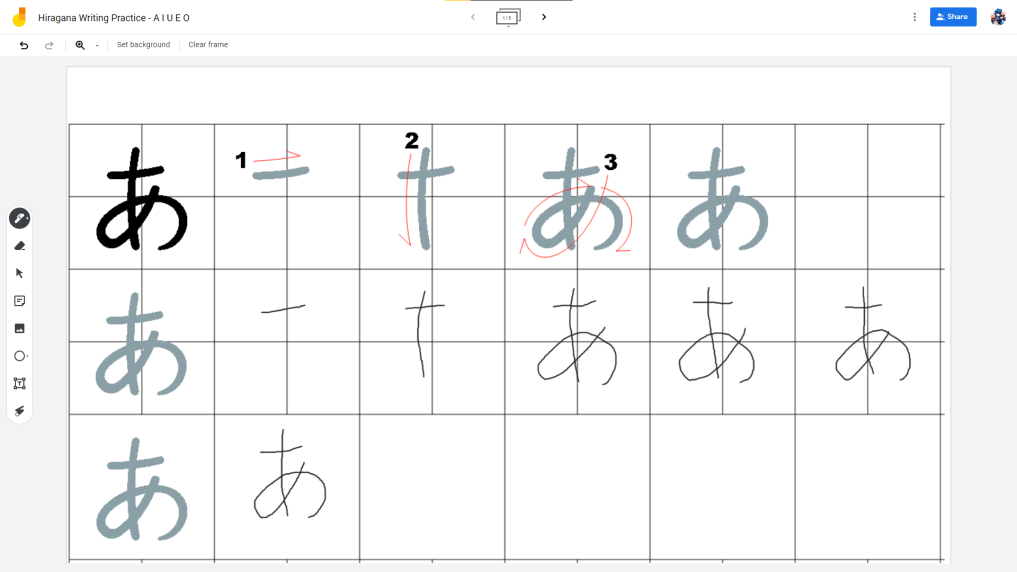 Hiragana Writing Practice - A I U E O
1 / 5
Share
Set background
Clear frame
あ 1 2 あ 3 あ
あ あ あ あ
あ あ